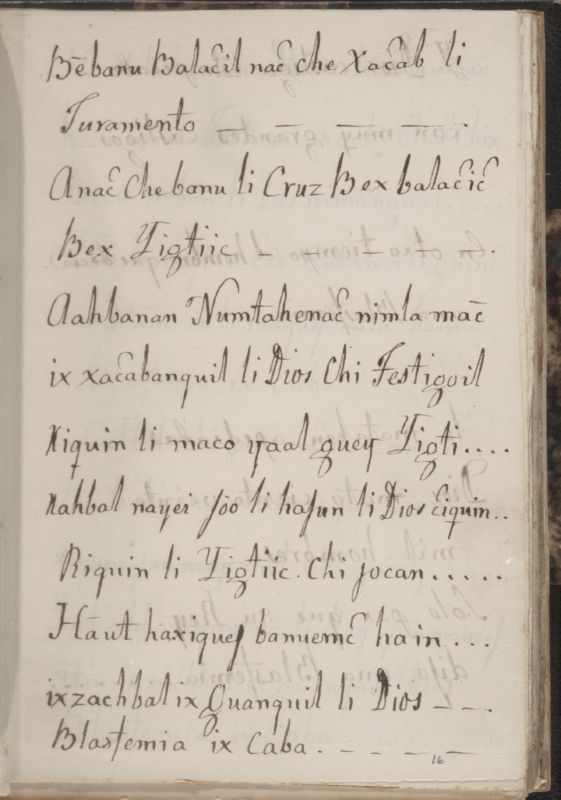 Bēbanu Balac̄il nac̄ che Xac̄ab li
Juramento — — — — —
Anac̄ Che banu li Cruz Bex balac̄ic̄
Bex Yigtiic - - - - - .
Aahbanan Numtahenac̄ nimla mac̄
ix xac̄abanquil li Dios Chi Testigoil
Riquin li maco yaal guey Yigti....
Nahbal nayei joo li hasun li Dios c̄iquin..
Riquin li Yigtiic. Chi jocan.....
Hāut haxiques banuemc̄ hain ...
ixzachbal ix Guanquil li Dios - - .
Blasfemia ix Caba. - - - - -
16